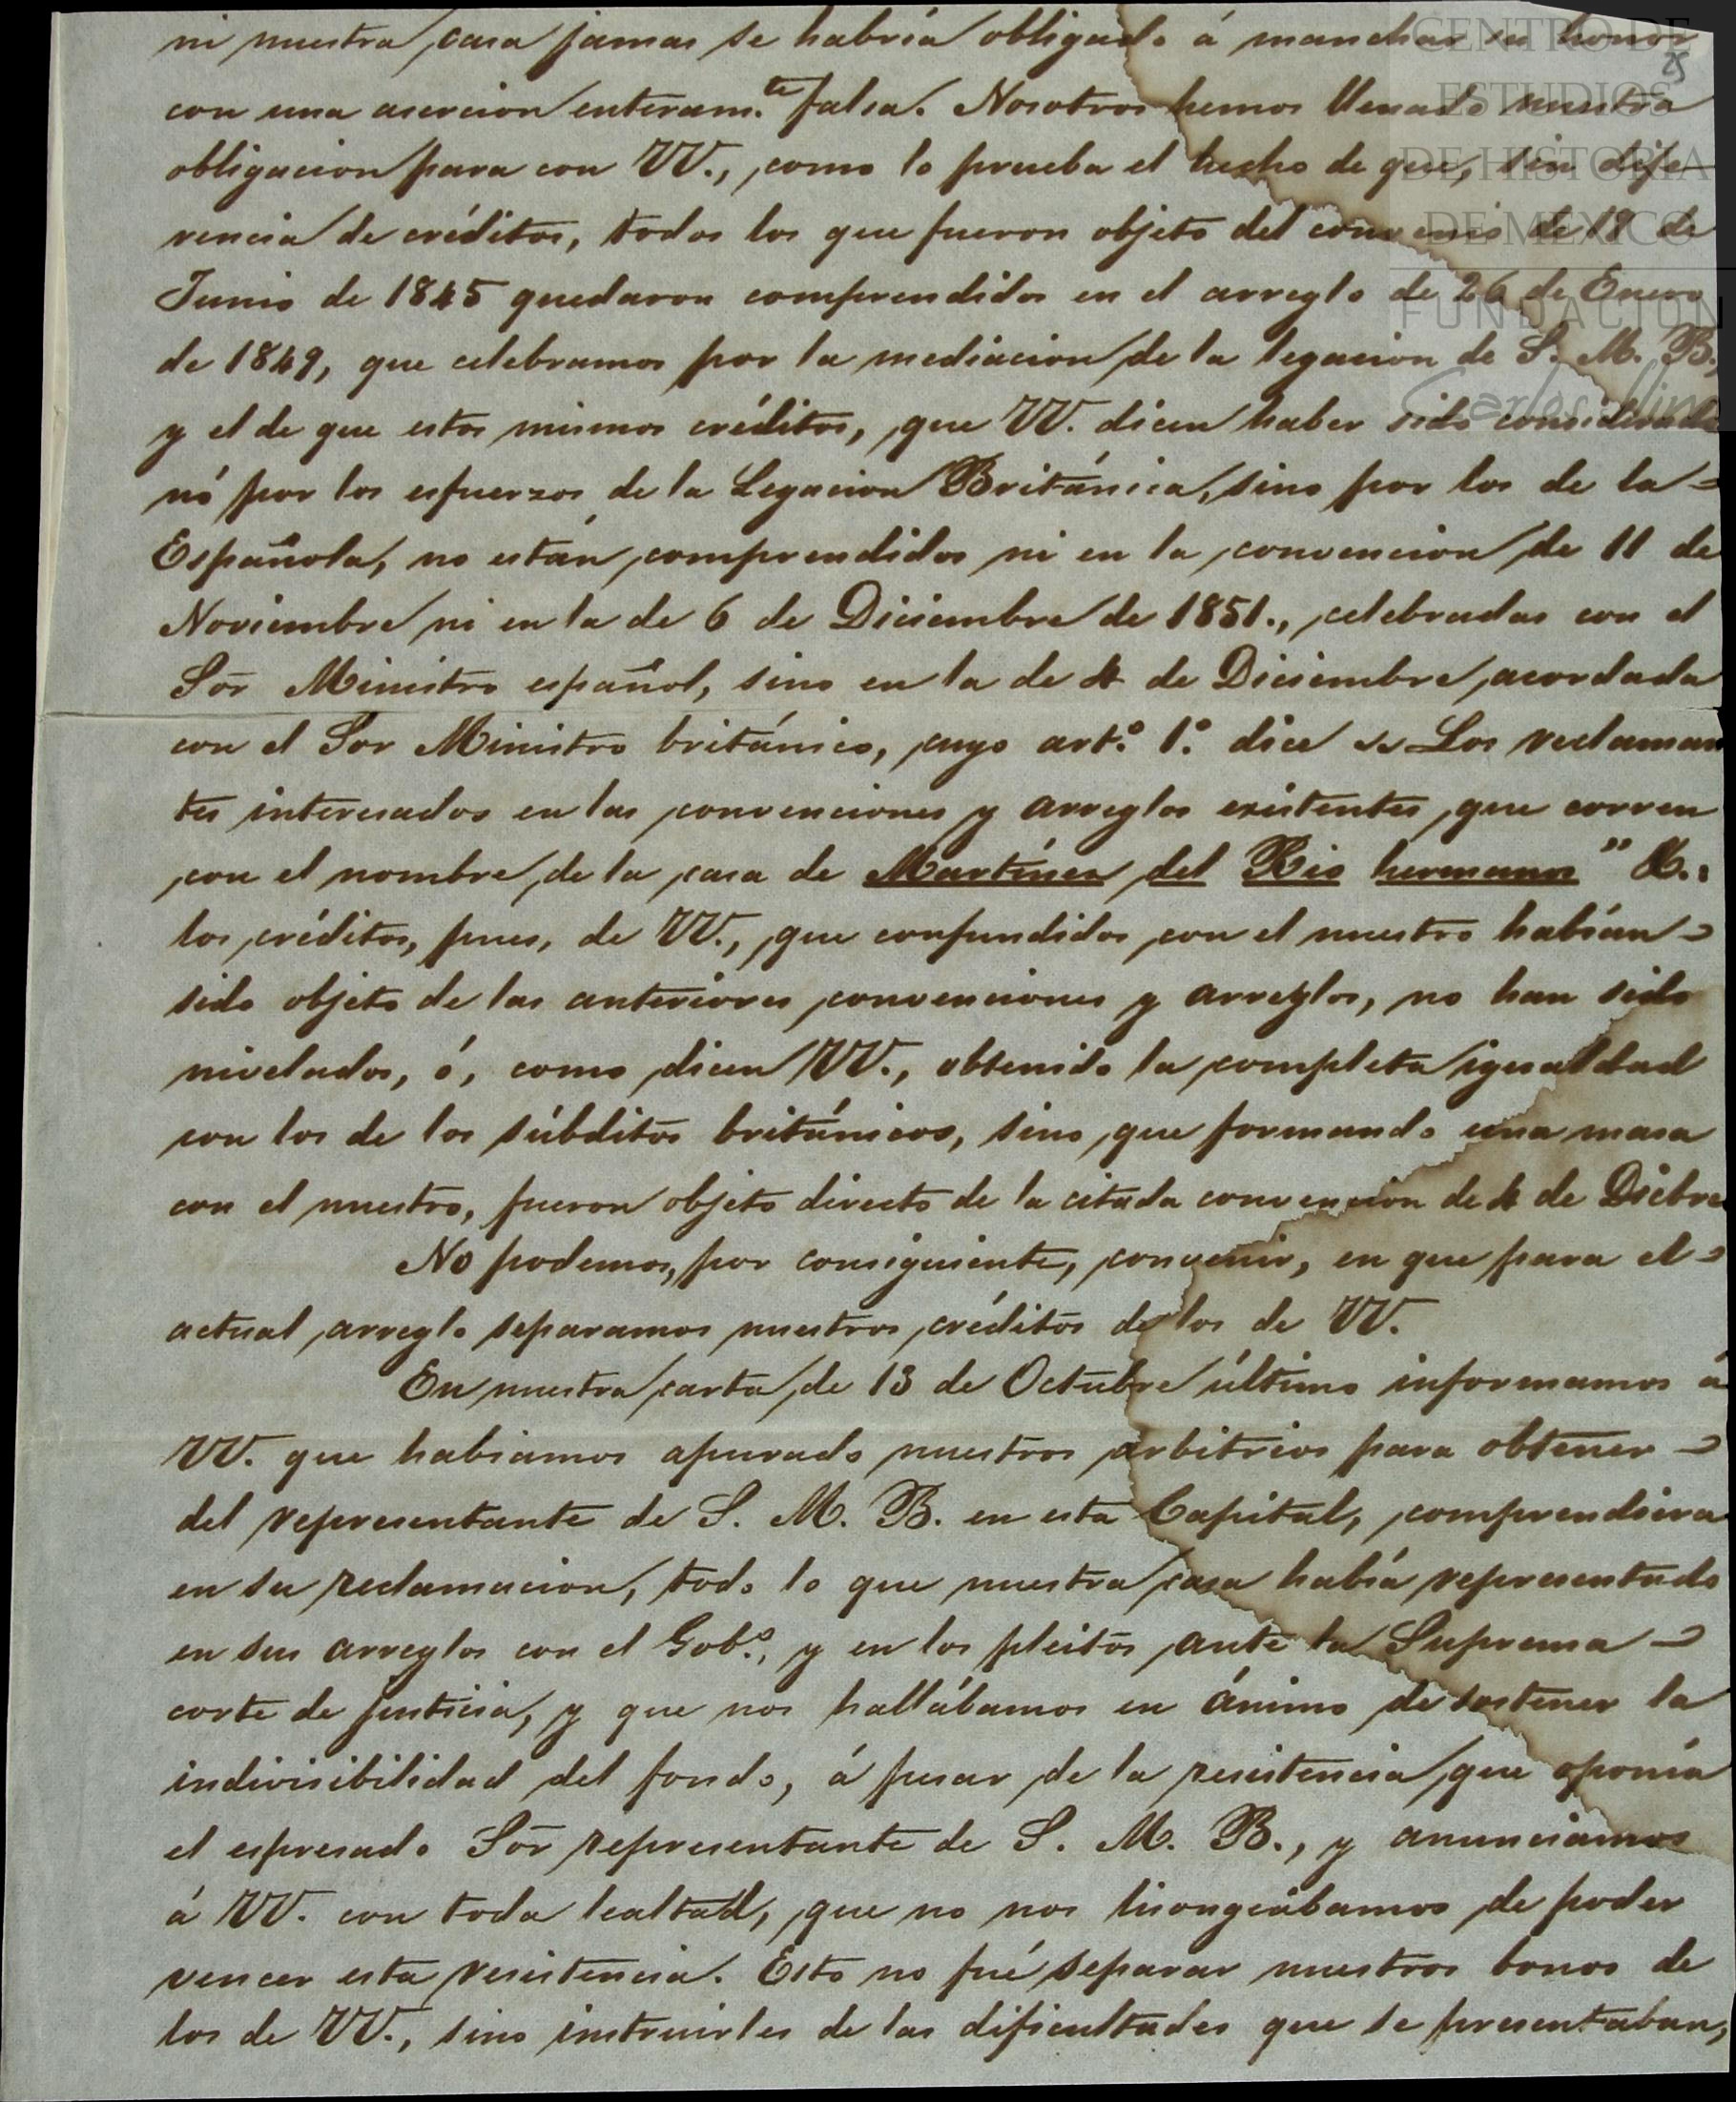 ni nuestra casa jamas se habria obligado á manchar su honor
25
con una asercion enteram.te falsa. Nosotros hemos llenado nuestra
obligacion para con VV., como lo prueba el hecho de que, sin dife
rencia de créditos, todos los que fueron objeto del convenio de 19 de
Junio de 1845 quedaron comprendidos en el arreglo de 26 de Enero
de 1849, que celebramos por la mediacion de la legacion de S. M. B.,
y el de que estos mismos créditos, que VV. dicen haber sido considerados
nó por los esfuerzos de la Legacion Británica, sino por los de la
Española, no están comprendidos ni en la convencion de 11 de
Noviembre ni en la de 6 de Diciembre de 1851., celebradas con el
Sōr Ministro español, sino en la de 4 de Diciembre, acordada
con el Sor Ministro británico, cuyo art.º 1.º dice "Los reclaman
tes interesados en las convenciones y arreglos existentes, que corren
con el nombre de la casa de Martínez del Rio hermanos" &.:
los créditos, pues, de VV., que confundidos con el nuestro habían
sido objeto de las anteriores convenciones y arreglos, no han sido
nivelados, ó, como dicen VV., obtenido la completa igualdad
con los de los súbditos británicos, sino que formando una masa
con el nuestro, fueron objeto directo de la citada convencion de 4 de Dicbre
No podemos, por consiguiente, convenir, en que para el
actual arreglo separamos nuestros créditos de los de VV.
En nuestra carta de 13 de Octubre último informamos á
VV. que habiamos apurado nuestros arbitrios para obtener
del representante de S. M. B. en esta Capital, comprendiera
en su reclamacion, todo lo que nuestra casa había representado
en sus arreglos con el Gob.º, y en los pleitos ante la Suprema
corte de justicia, y que nos hallábamos en ánimo de sostener la
indivisibilidad del fondo, á pesar de la resistencia que oponía
el espresado Sōr representante de S. M. B., y anunciamos
á VV. con toda lealtad, que no nos lisongeábamos de poder
vencer esta resistencia. Esto no fué separar nuestros bonos de
los de VV., sino instruirles de las dificultades que se presentaban,
CENTRO DE
ESTUDIOS
DE HISTORIA
DE MEXICO
FUNDACION
Carlos Slim